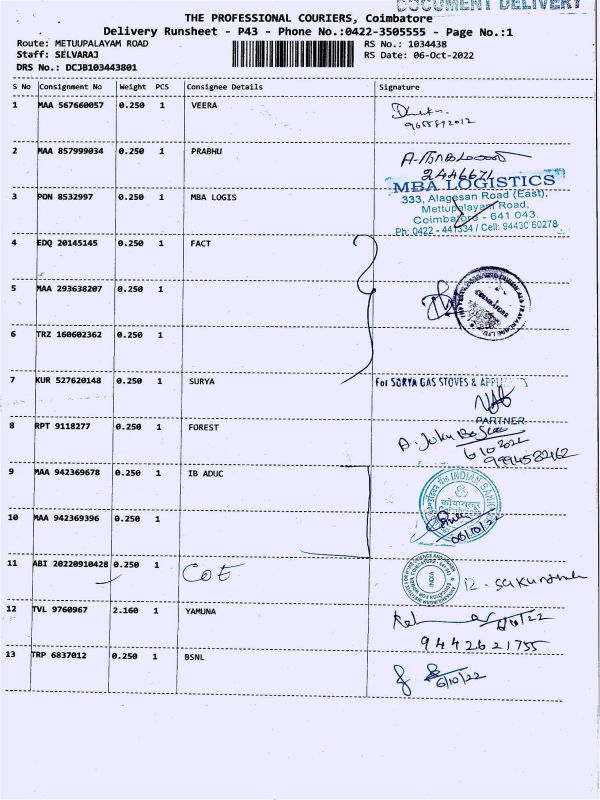 DOCUMENT DELIVERY
THE PROFESSIONAL COURIERS, Coimbatore
Delivery Runsheet - P43 - Phone No.:0422-3505555 - Page No.:1
Route: METUUPALAYAM ROAD
RS No.: 1034438
Staff: SELVARAJ
RS Date: 06-Oct-2022
DRS No.: DCJB103443801
S No Consignment No Weight PCS Consignee Details Signature
1 MAA 567660057 0.250 1 VEERA
9655892012
2 MAA 857999034 0.250 1 PRABHU
2446671
3 PON 8532997 0.250 1 MBA LOGIS
MBA LOGISTICS
333, Alagesan Road (East),
Mettupalayam Road,
Coimbatore - 641 043.
Ph: 0422 - 441334 / Cell: 94430 60278
4 EDQ 20145145 0.250 1 FACT
5 MAA 293638207 0.250 1
COIMBATORE
6 TRZ 160602362 0.250 1
7 KUR 527620148 0.250 1 SURYA
For SURYA GAS STOVES &
PARTNER
8 RPT 9118277 0.250 1 FOREST
6/10/2022
9994582162
9 MAA 942369678 0.250 1 IB ADUC
INDIAN BANK
10 MAA 942369396 0.250 1
06/10/22
11 ABI 20220910428 0.250 1 COE
INDIA
12 TVL 9760967 2.160 1 YAMUNA
6/10/22
9442621755
13 TRP 6837012 0.250 1 BSNL
6/10/22